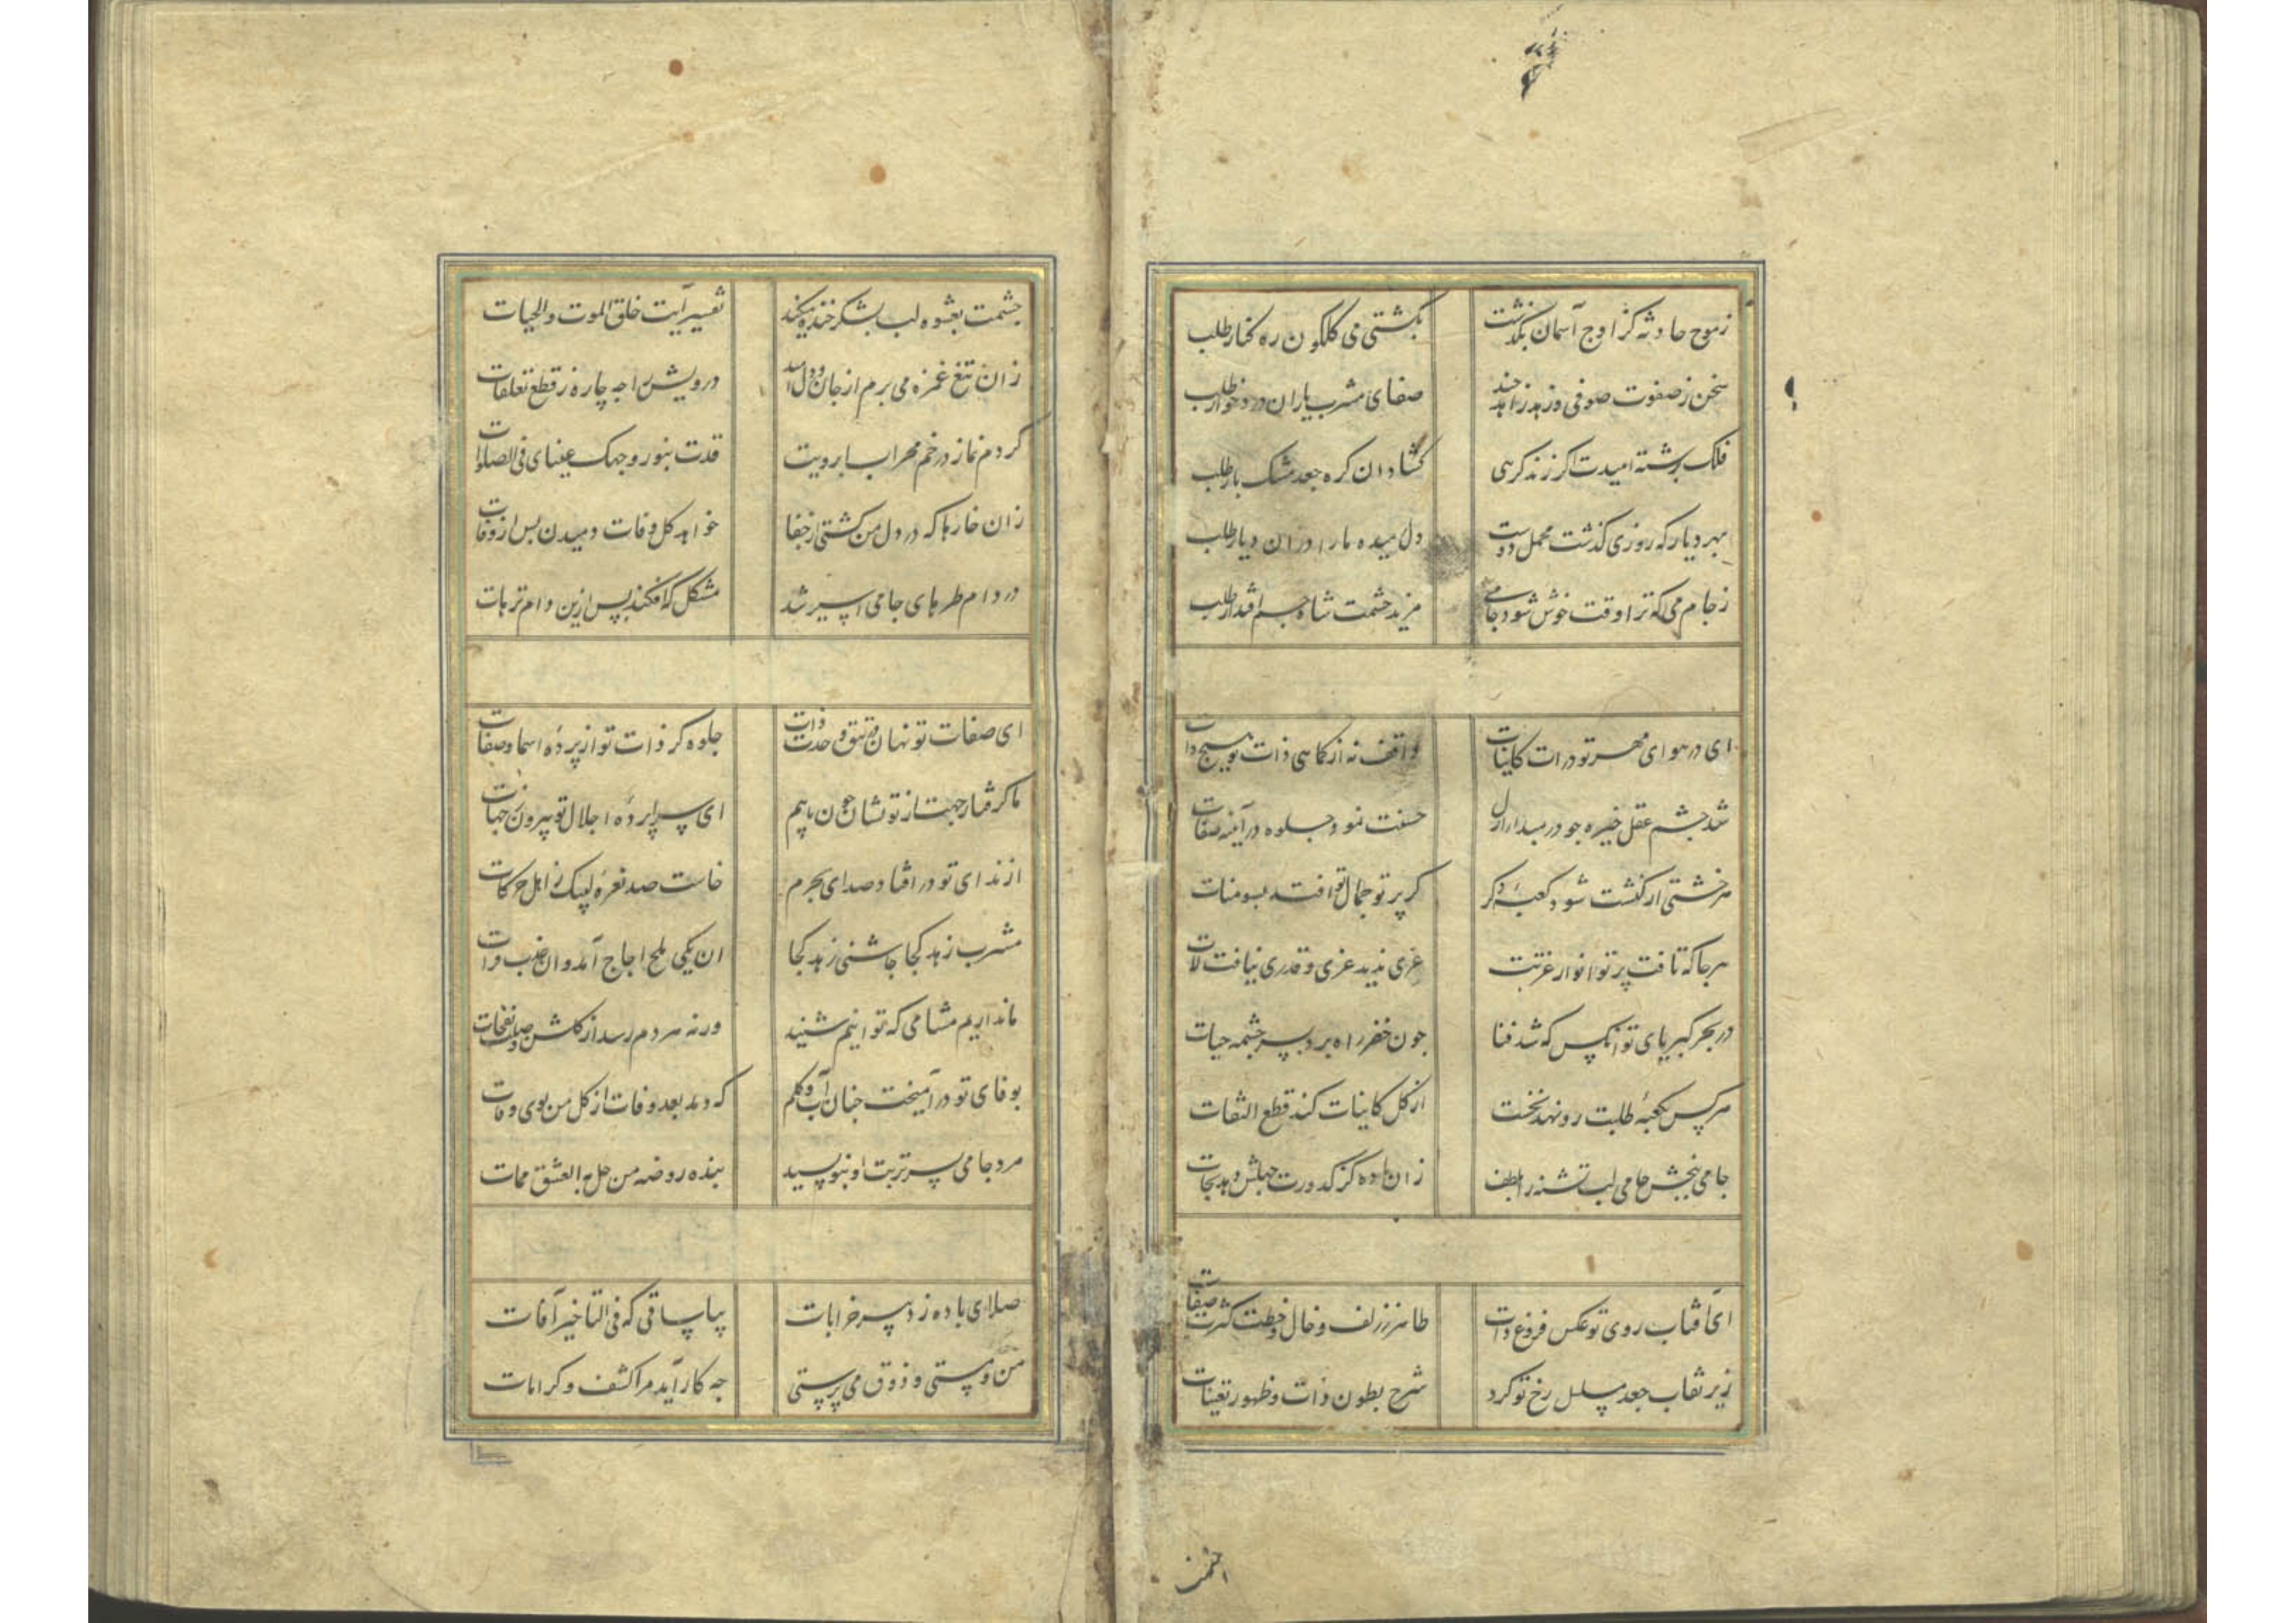 زموج حادثه کز اوج آسمان بگذشت بکشتی می گلگون ره کنار طلب
سخن ز صفوت صوفی و زهد زاهد چند صفای مشرب یاران درد خوار طلب
فلک برشته امیدت اگر زند گرهی گشاد ان گره جعد مشک بار طلب
بهر دیار که روزی گذشت محمل دوست دل رمیده ما را دران دیار طلب
ز جام می که ترا وقت خوش شود جامی مزید حشمت شاه جم اقتدار طلب
ای در هوای مهر تو ذرات کاینات واقف نه از کماهی ذات تو هیچ ذات
شد چشم عقل خیره چو در مبدا ازل حسنت نمود جلوه در آینه صفات
هر خشتی از کنشت شود کعبه دگر گر پرتو جمال تو افتد بسومنات
هر جا که تافت پرتو انوار عزتت عزی ندید عزی و قدری نیافت لات
در بحر کبریای تو انکس که شد فنا چون خضر راه برد بسر چشمه حیات
هر کس بکعبه طلبت رو نهد نخست از کل کاینات کند قطع التفات
جامی ببخش جامی لب تشنه را بلطف زان باده کز کدورت جهلش دهد نجات
ای آفتاب روی تو عکس فروغ ذات ظاهر ز زلف و خال و خطت کثرت صفات
زیر نقاب جعد مسلسل رخ تو کرد شرح بطون ذات و ظهور تعینات
اخمن
چشمت بعشوه لب بشکر خنده میکند تفسیر آیت خلق الموت و الحیات
زان تیغ غمزه می برم از جان و دل امید درویش را چه چاره ز قطع تعلقات
کردم نماز در خم محراب ابرویت قدت بنور وجهک عینای فی الصلوات
زان خارها که در دل من کشتی از جفا خواهد گل وفات دمیدن پس از وفات
در دام طره های جامی اسیر شد مشکل که افکند پس ازین دام ترهات
ای صفات تو نهان در تتق وحدت ذات جلوه گر ذات تو از پرده اسما و صفات
ما گرفتار جهت از تو نشان چون یابیم ای سراپرده اجلال تو بیرون ز جهات
از ندای تو در افتاد صدای بحرم خاست صد نعره لبیک ز اهل حرکات
مشرب زهد کجا چاشنی زهد کجا ان یکی ملح اجاج آمد و ان عذب فرات
ما نداریم مشامی که توانیم شنید ورنه هر دم رسد از گلشن وصلت نفحات
بوفای تو در آمیخت چنان آب و گلم که دمد بعد وفات از گل من بوی وفات
مرد جامی بسر تربت او بنویسید هذه روضه من حل به العشق ممات
صلای باده زد پیر خرابات بیا ساقی که فی التاخیر آفات
من و مستی و ذوق می پرستی چه کار آید مرا کشف و کرامات